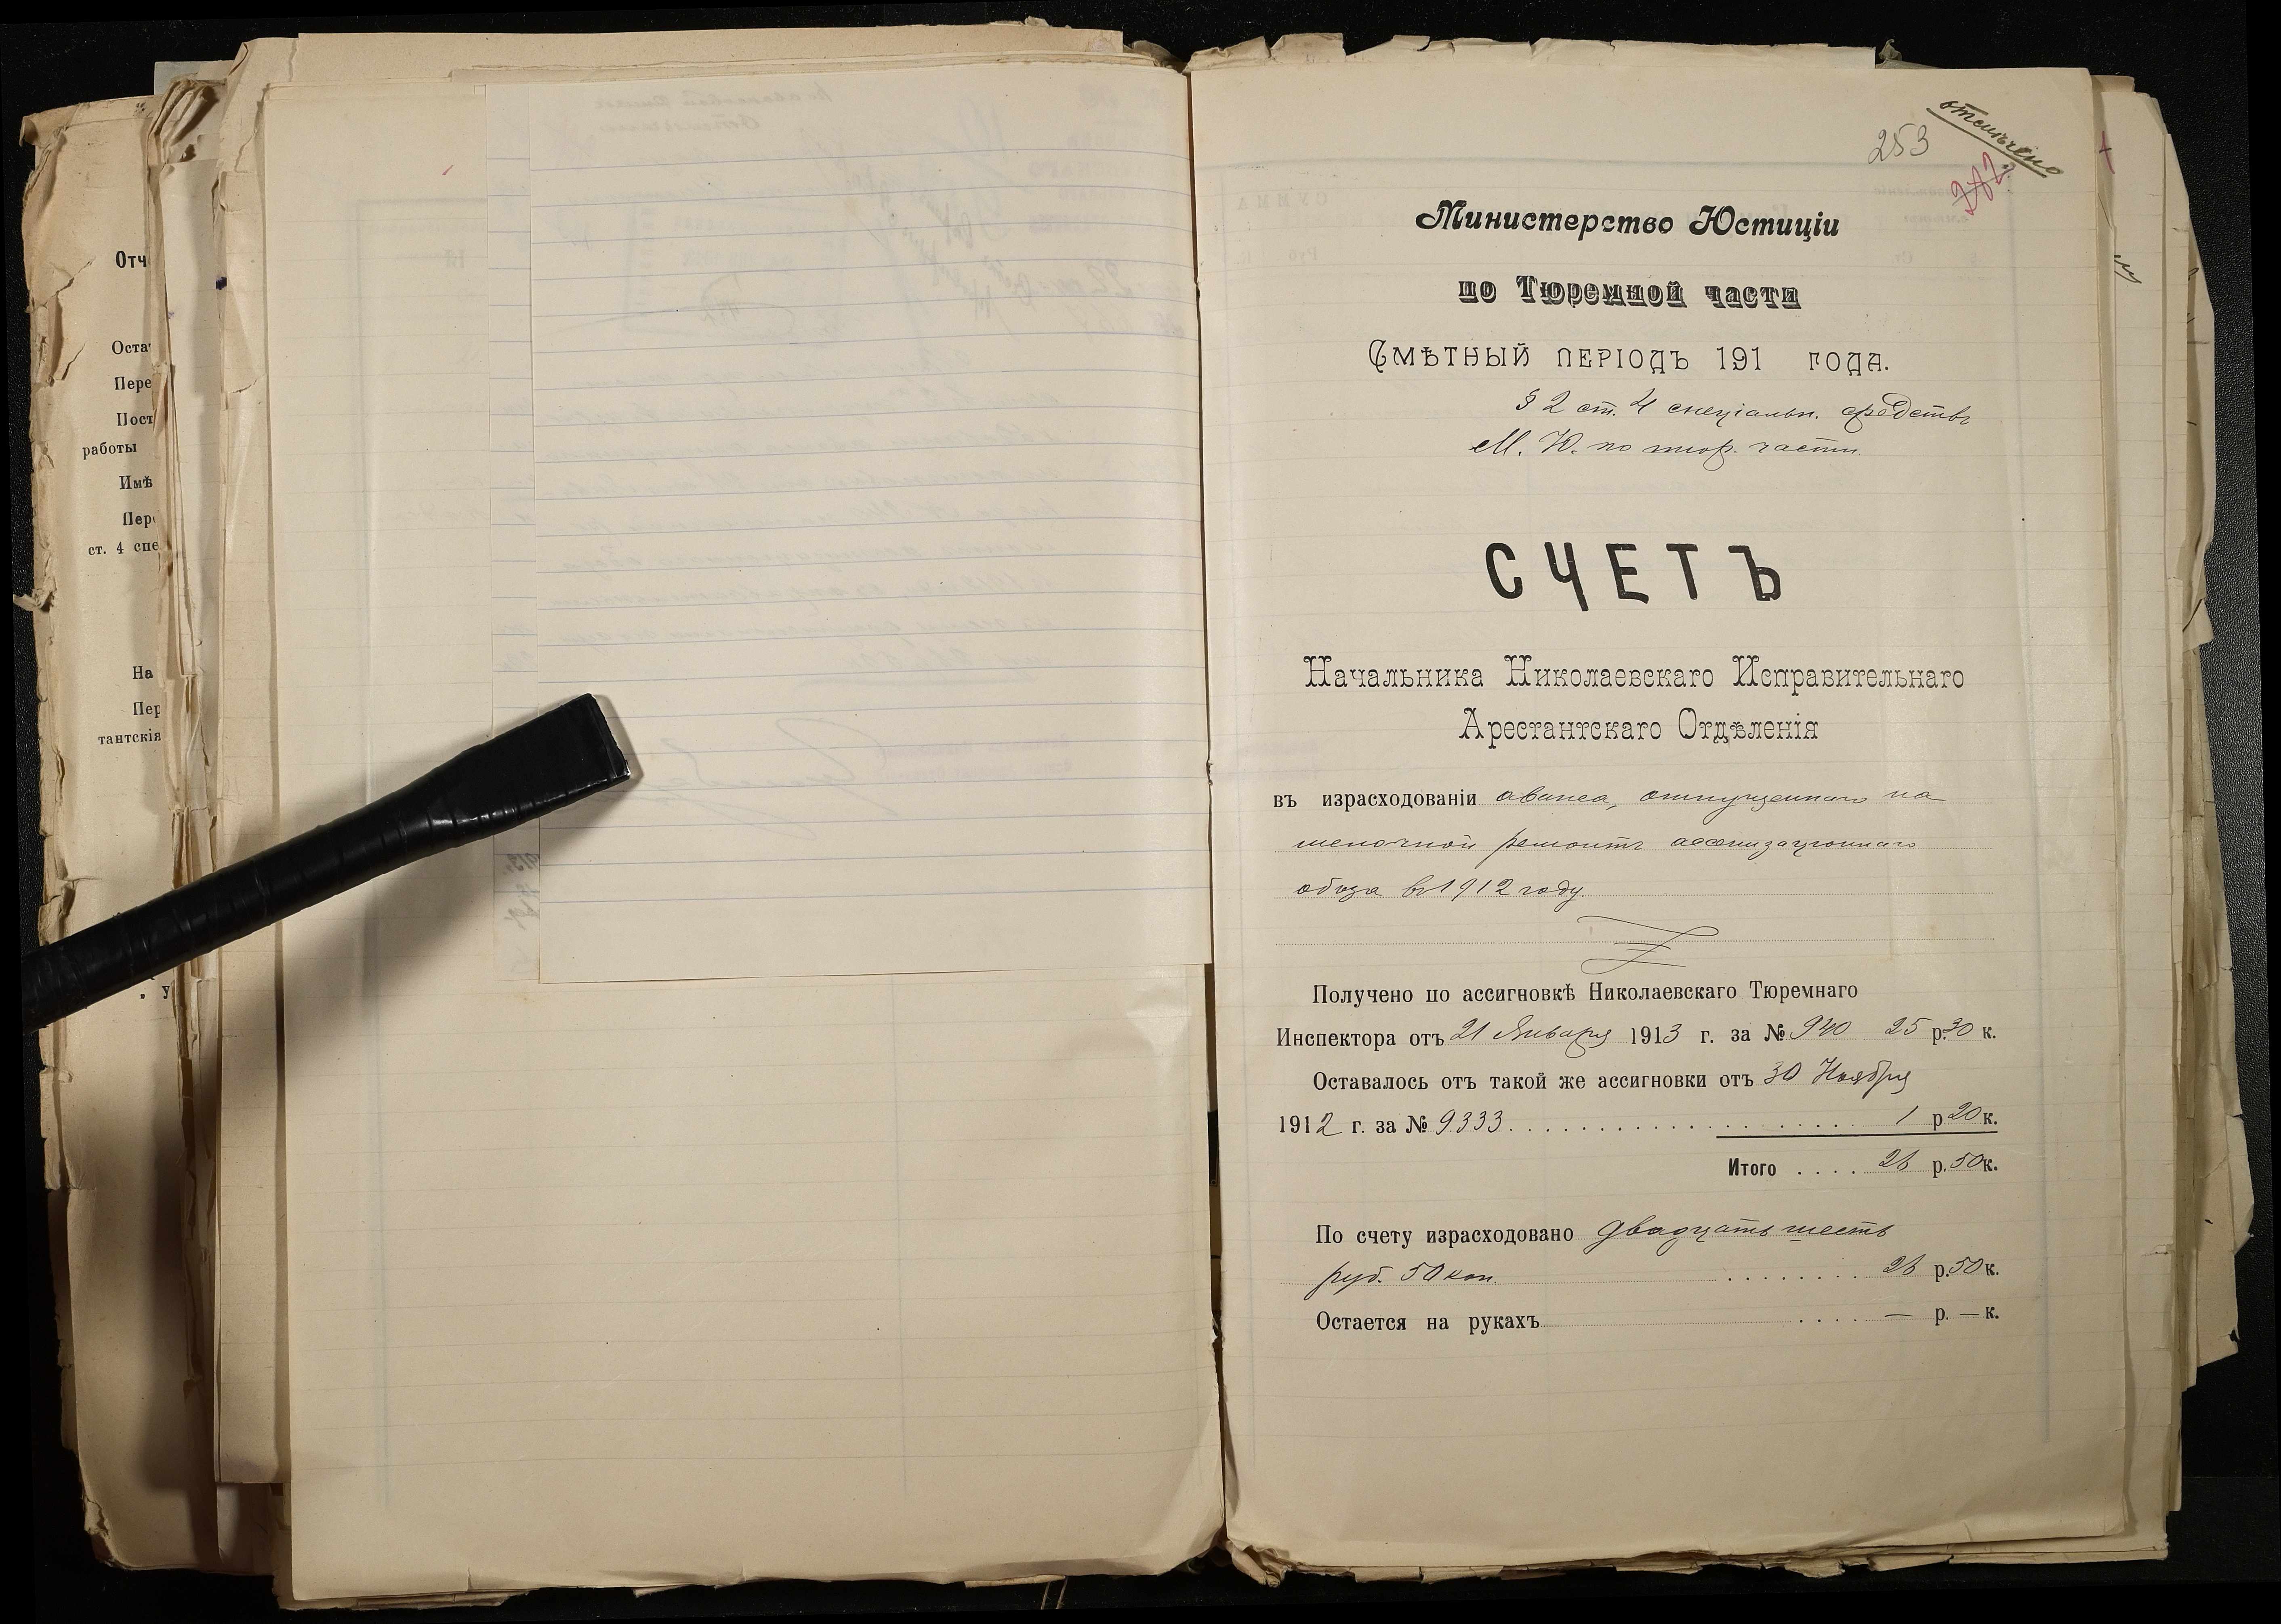 Отч
Оста
Пере
Пост
работы
Имѣ
Пер
ст. 4 спе
На
Пер
тантскія
отмѣчено
253
Министерство Юстиціи
по Тюремной части
Смѣтный періодъ 191 года.
§ 2 ст. 4 спеціальн. средствъ
М. Ю. по тюр. части.
СЧЕТЪ
Начальника Николаевскаго Исправительнаго
Арестантскаго Отдѣленія
въ израсходованіи аванса, отпущеннаго на
мелочной ремонтъ ассенизаціоннаго
обоза въ 1912 году.
Получено по ассигновкѣ Николаевскаго Тюремнаго
Инспектора отъ 21 Января 1913 г. за № 940 25 р. 30 к.
Оставалось отъ такой же ассигновки отъ 30 Ноября
1912 г. за № 9333 . . . . . . . . . . 1 р 20 к.
Итого . . . . 26 р. 50 к.
По счету израсходовано двадцать шесть
руб. 50 коп. . . . . . . . . 26 р. 50 к.
Остается на рукахъ . . . . . — р. — к.